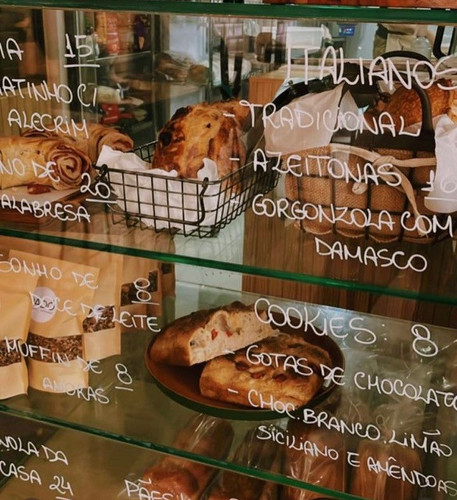 IA 15
ATINHO C/
ALECRIM
NO DE 20
ALABRESA
ITALIANOS
- TRADICIONAL
- AZEITONAS
GORGONZOLA COM
DAMASCO
SONHO DE 8
CE DE LEITE
MUFFIN DE 8
AMORAS
NOLA DA
CASA 24
COOKIES: 8
- GOTAS DE CHOCOLATE
- CHOC. BRANCO, LIMÃO
SICILIANO E AMÊNDOAS
PÃES